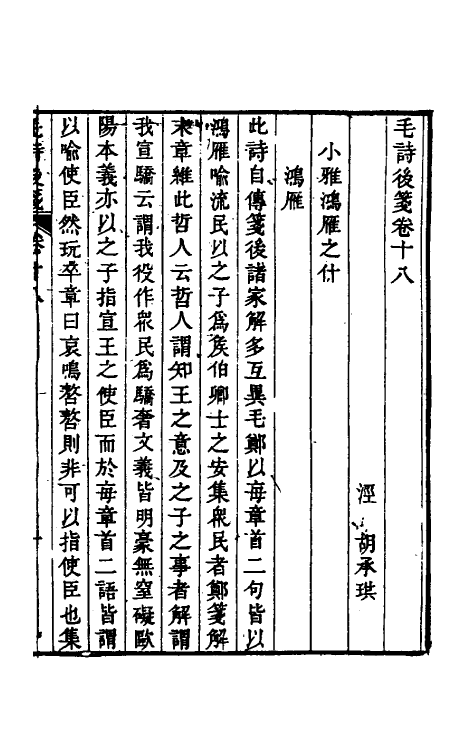 毛詩後箋卷十八
涇 胡承珙
小雅鴻雁之什
鴻雁
此詩自傳箋後諸家解多互異毛鄭以每章首二句皆以
鴻雁喻流民以之子爲矦伯卿士之安集衆民者鄭箋解
末章維此哲人云哲人謂知王之意及之子之事者解謂
我宣驕云謂我役作衆民爲驕奢文義皆明豪無窒礙歐
陽本義亦以之子指宣王之使臣而於每章首二語皆謂
以喻使臣然玩卒章曰哀鳴嗸嗸則非可以指使臣也集
毛詩後箋 卷十八